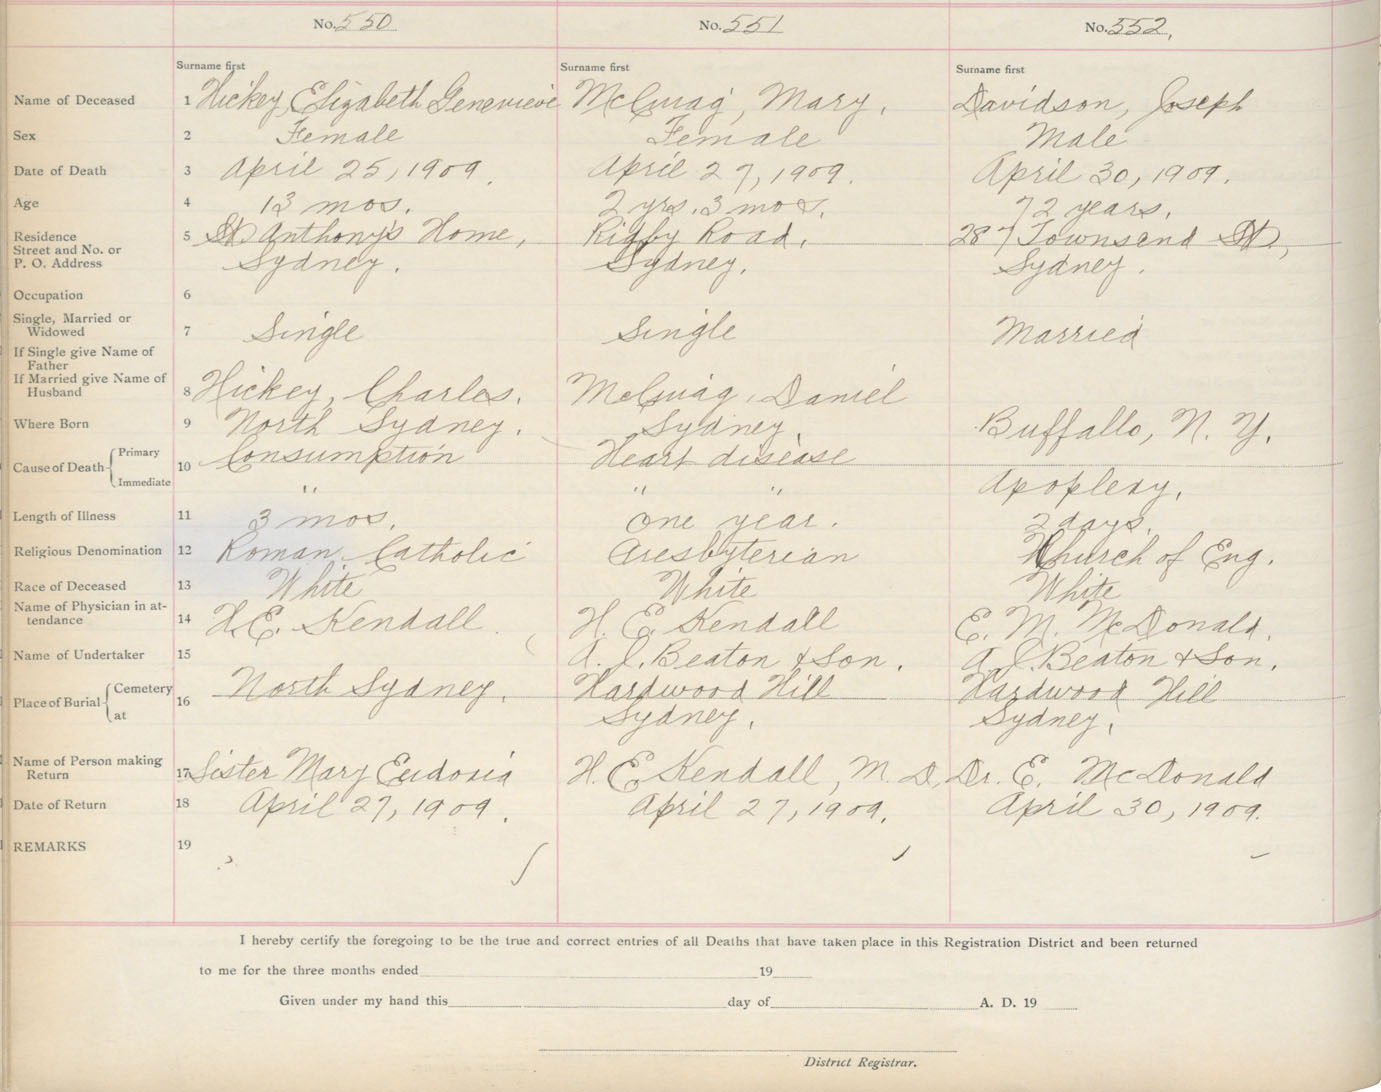 No. 550 No. 551 No. 552,
Surname first Surname first Surname first
Name of Deceased 1 Hickey, Elizabeth Genevieve McCuag, Mary, Davidson, Joseph
Sex 2 Female Female Male
Date of Death 3 April 25, 1909. April 27, 1909. April 30, 1909.
Age 4 13 mos. 2 yrs. 3 mos. 72 years.
Residence 5 St. Anthony's Home, Rigby Road, 287 Townsend St,
Street and No. or
P. O. Address Sydney. Sydney. Sydney.
Occupation 6
Single, Married or
Widowed 7 Single Single Married
If Single give Name of
Father
If Married give Name of
Husband 8 Hickey, Charles. McCuag, Daniel
Where Born 9 North Sydney. Sydney. Buffallo, N. Y.
Cause of Death Primary 10 Consumption Heart disease
Immediate " " " Apoplexy.
Length of Illness 11 3 mos. One year. 2 days.
Religious Denomination 12 Roman Catholic Presbyterian Church of Eng.
Race of Deceased 13 White White White
Name of Physician in at-
tendance 14 H. E. Kendall. H. E. Kendall E. M. McDonald.
Name of Undertaker 15 A. J. Beaton & Son. A. J. Beaton & Son.
Place of Burial Cemetery 16 North Sydney. Hardwood Hill Hardwood Hill
at Sydney. Sydney.
Name of Person making
Return 17 Sister Mary Eudosia H. E. Kendall, M. D. Dr. E. McDonald
Date of Return 18 April 27, 1909. April 27, 1909. April 30, 1909.
REMARKS 19
I hereby certify the foregoing to be the true and correct entries of all Deaths that have taken place in this Registration District and been returned
to me for the three months ended 19
Given under my hand this day of A. D. 19
District Registrar.